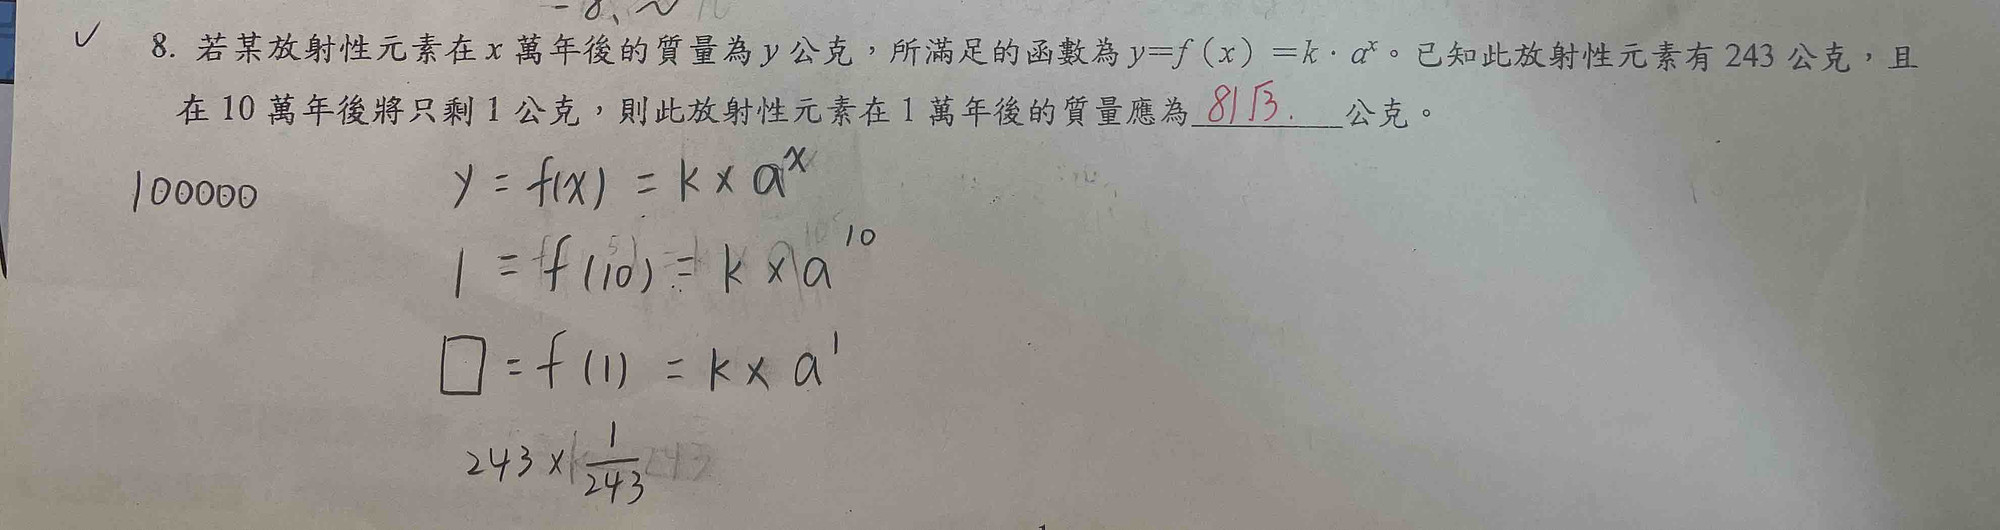 8. 若某放射性元素在 x 萬年後的質量為 y 公克，所滿足的函數為 y=f (x) =k · aˣ。已知此放射性元素有 243 公克，且
在 10 萬年後將只剩 1 公克，則此放射性元素在 1 萬年後的質量應為 81√3. 公克。
100000
y = f(x) = k × aˣ
1 = f(10) = k × a¹⁰
□ = f(1) = k × a¹
243 × 1/243